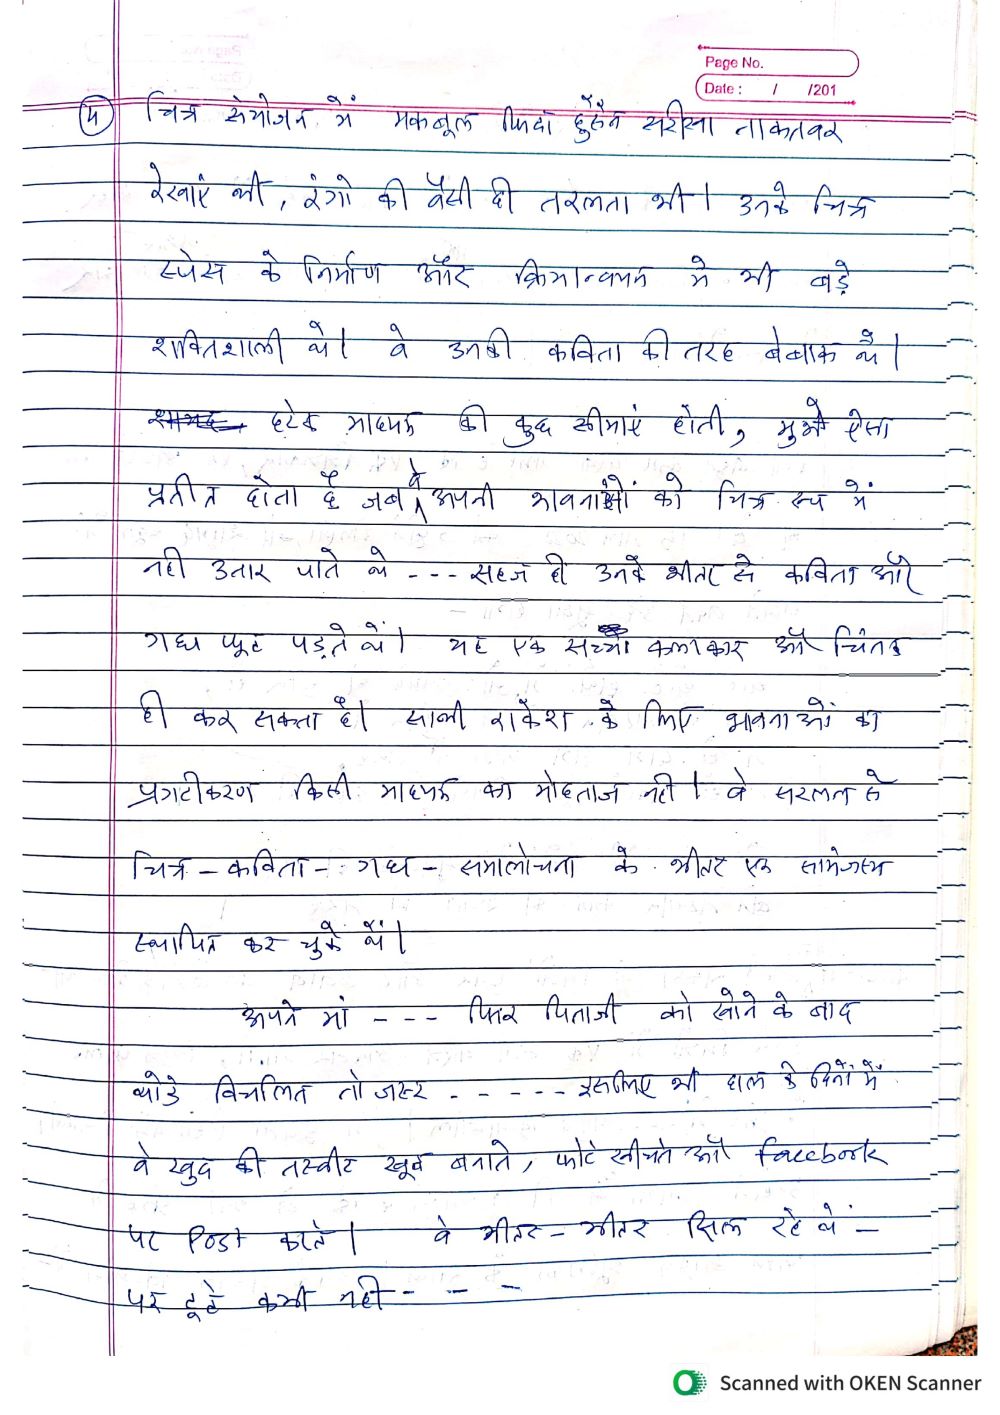 Page No.
Date : / /201
(५) चित्र संयोजन में मकबूल फिदा हुसैन सरीखा ताकतवर
रेखाएं थी, रंगो की वैसी ही तरलता भी। उनके चित्र
स्पेस के निर्माण और क्रियान्वयन में भी बड़े
शक्तिशाली थे। वे उनकी कविता की तरह बेबाक थे।
हरेक माध्यम की कुछ सीमाएं होती, मुझे ऐसा
प्रतीत होता है जब वे अपनी भावनाओं को चित्र रूप में
नही उतार पाते थे --- सहज ही उनके भीतर से कविता और
गद्य फूट पड़ते थे। यह एक सच्चा कलाकार और चिंतक
ही कर सकता है। साली राकेश के लिए भावनाओं का
प्रगटीकरण किसी माध्यम का मोहताज नही। वे सरलता से
चित्र – कविता – गद्य – समालोचना के भीतर एक सामंजस्य
स्थापित कर चुके थें।
अपने मां --- फिर पिताजी को खोने के बाद
थोडे विचलित तो जरूर ------ इसलिए भी हाल के दिनों में
वे खुद की तस्वीर खूब बनाते, फोटो खीचते और Facebook
पर Post करते। वे भीतर – भीतर छिल रहे थे –
पर टूटे कभी नही - - -
Scanned with OKEN Scanner